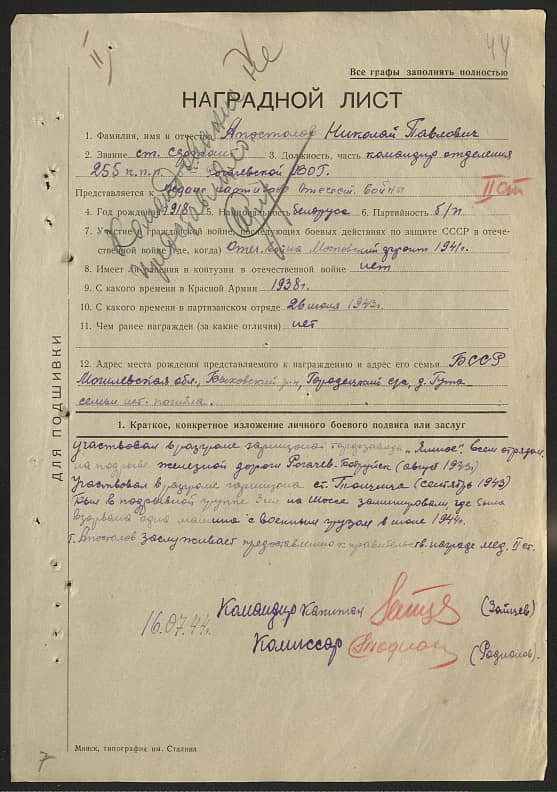 44
II
Все графы заполнять полностью
НАГРАДНОЙ ЛИСТ
1. Фамилия, имя и отчество Апостолов Николай Павлович
2. Звание ст. сержант 3. Должность, часть командир отделения
255 п.п.п. Рогачевской ВОГ.
Представляется к медали партизану Отечест. Войны II ст
4. Год рождения 1918 г. 5. Национальность белорус 6. Партийность б/п
7. Участие в Гражданской войне, последующих боевых действиях по защите СССР и отече-
ственной войне (где, когда) Отеч. война Московский фронт 1941 г.
8. Имеет ли ранения и контузии в отечественной войне нет
9. С какого времени в Красной Армии 1938 г.
10. С какого времени в партизанском отряде 26 июня 1943 г.
11. Чем ранее награжден (за какие отличия) нет
12. Адрес места рождения представляемого к награждению и адрес его семьи БССР
Могилевская обл., Быховский р-н, Городецкий с/с, д. Гута
семьи нет. погибла.
1. Краткое, конкретное изложение личного боевого подвига или заслуг
участвовал в разгроме гарнизона торфозавода всем отрядом
на подрыве железной дороги Рогачев-Бобруйск (август 1943)
Участвовал в разгроме гарнизона ст. Тощица (сентябрь 1943)
Был в подрывной группе на шоссе заминировали, где была
взорвана одна машина с военным грузом в июне 1944 г.
т. Апостолов заслуживает представлению к правительств. награде мед. II ст.
Командир капитан (Зайцев)
16.07.44 г.
Комиссар (Родионов)
Командование не
представляло
ДЛЯ ПОДШИВКИ
Минск, типография им. Сталина
7